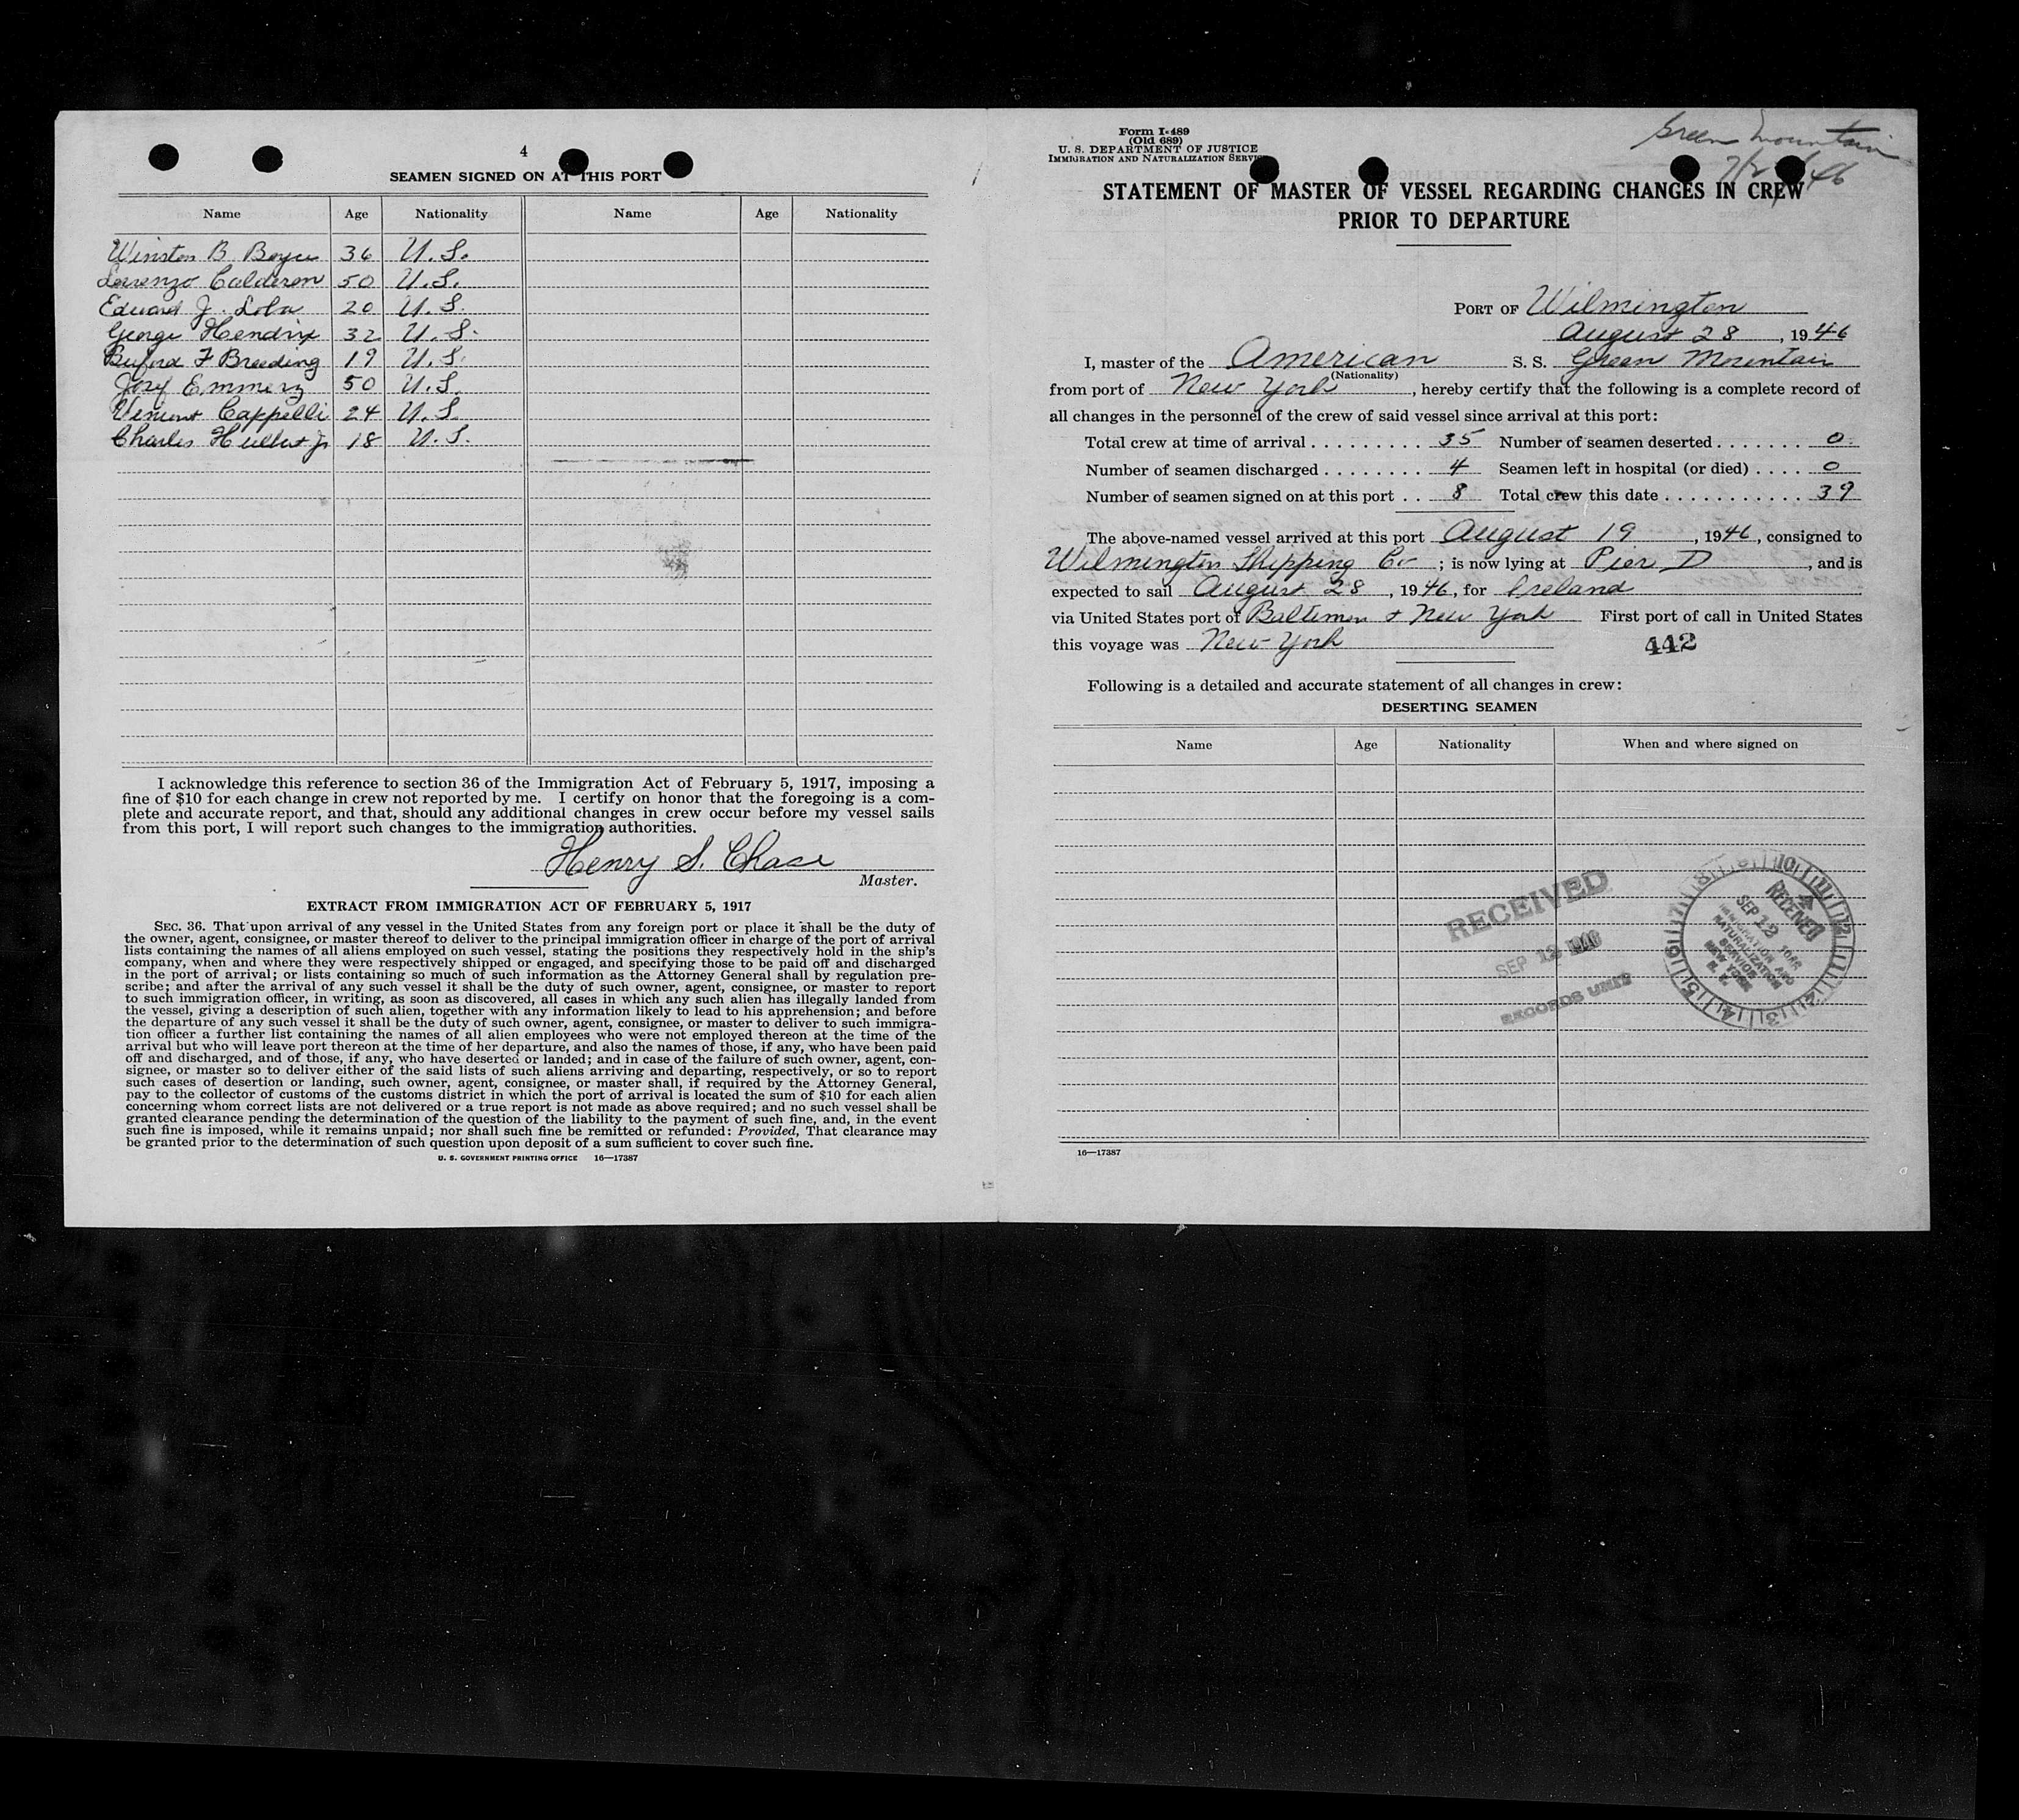 4
SEAMEN SIGNED ON AT THIS PORT
Name Age Nationality Name Age Nationality
Winston B. Boyce 36 U.S.
Lorenzo Calderon 50 U.S.
Edward J. 20 U.S.
George Hendrix 32 U.S.
Buford F Breeding 19 U.S.
Emmerz 50 U.S.
Cappelli 24 U.S.
Charles Jr 18 U.S.
I acknowledge this reference to section 36 of the Immigration Act of February 5, 1917, imposing a
fine of $10 for each change in crew not reported by me. I certify on honor that the foregoing is a com-
plete and accurate report, and that, should any additional changes in crew occur before my vessel sails
from this port, I will report such changes to the immigration authorities.
Henry S. Chase
Master.
EXTRACT FROM IMMIGRATION ACT OF FEBRUARY 5, 1917
SEC. 36. That upon arrival of any vessel in the United States from any foreign port or place it shall be the duty of
the owner, agent, consignee, or master thereof to deliver to the principal immigration officer in charge of the port of arrival
lists containing the names of all aliens employed on such vessel, stating the positions they respectively hold in the ship's
company, when and where they were respectively shipped or engaged, and specifying those to be paid off and discharged
in the port of arrival; or lists containing so much of such information as the Attorney General shall by regulation pre-
scribe; and after the arrival of any such vessel it shall be the duty of such owner, agent, consignee, or master to report
to such immigration officer, in writing, as soon as discovered, all cases in which any such alien has illegally landed from
the vessel, giving a description of such alien, together with any information likely to lead to his apprehension; and before
the departure of any such vessel it shall be the duty of such owner, agent, consignee, or master to deliver to such immigra-
tion officer a further list containing the names of all alien employees who were not employed thereon at the time of the
arrival but who will leave port thereon at the time of her departure, and also the names of those, if any, who have been paid
off and discharged, and of those, if any, who have deserted or landed; and in case of the failure of such owner, agent, con-
signee, or master so to deliver either of the said lists of such aliens arriving and departing, respectively, or so to report
such cases of desertion or landing, such owner, agent, consignee, or master shall, if required by the Attorney General,
pay to the collector of customs of the customs district in which the port of arrival is located the sum of $10 for each alien
concerning whom correct lists are not delivered or a true report is not made as above required; and no such vessel shall be
granted clearance pending the determination of the question of the liability to the payment of such fine, and, in the event
such fine is imposed, while it remains unpaid; nor shall such fine be remitted or refunded: Provided, That clearance may
be granted prior to the determination of such question upon deposit of a sum sufficient to cover such fine.
U. S. GOVERNMENT PRINTING OFFICE 16—17387
Form I-489
(Old 689)
U. S. DEPARTMENT OF JUSTICE
IMMIGRATION AND NATURALIZATION SERVICE
Green Mountain
STATEMENT OF MASTER OF VESSEL REGARDING CHANGES IN CREW
PRIOR TO DEPARTURE
PORT OF Wilmington
August 28, 1946
I, master of the American S. S. Green Mountain
(Nationality)
from port of New York, hereby certify that the following is a complete record of
all changes in the personnel of the crew of said vessel since arrival at this port:
Total crew at time of arrival .......... 35 Number of seamen deserted ....... 0
Number of seamen discharged ........ 4 Seamen left in hospital (or died) .... 0
Number of seamen signed on at this port .. 8 Total crew this date ........... 39
The above-named vessel arrived at this port August 19, 1946, consigned to
Wilmington Shipping Co; is now lying at Pier D, and is
expected to sail August 28, 1946, for Ireland
via United States port of Baltimore + New York First port of call in United States
this voyage was New York 442
Following is a detailed and accurate statement of all changes in crew:
DESERTING SEAMEN
Name Age Nationality When and where signed on
RECEIVED
SEP 12 1946
RECORDS UNIT
RECEIVED
SEP 12
IMMIGRATION AND
NATURALIZATION
SERVICE
NEW YORK
N. Y.
16—17387